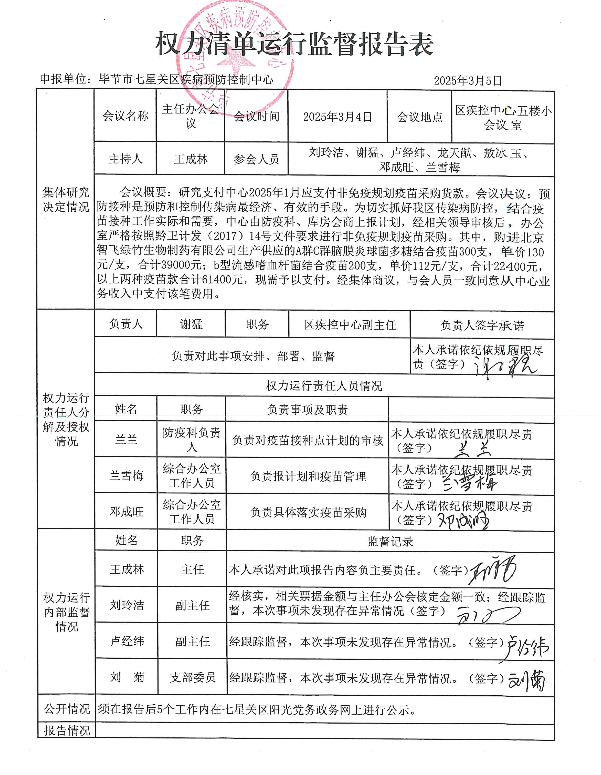 权力清单运行监督报告表
申报单位：毕节市七星关区疾病预防控制中心 2025年3月5日
集体研究决定情况
会议名称 主任办公会议 会议时间 2025年3月4日 会议地点 区疾控中心五楼小会议室
主持人 王成林 参会人员 刘玲洁、谢猛、卢经纬、龙天 、敖冰玉、邓成旺、兰雪梅
会议概要：研究支付中心2025年1月应支付非免疫规划疫苗采购货款。会议决议：预
防接种是预防和控制传染病最经济、有效的手段。为切实抓好我区传染病防控，结合疫
苗接种工作实际和需要，中心由防疫科、库房会商上报计划，经相关领导审核后，办公
室严格按照黔卫计发（2017）14号文件要求进行非免疫规划疫苗采购。其中，购进北京
智飞绿竹生物制药有限公司生产供应的A群C群脑膜炎球菌多糖结合疫苗300支，单价130
元/支，合计39000元；b型流感嗜血杆菌结合疫苗200支，单价112元/支，合计22400元，
以上两种疫苗款合计61400元，现需予以支付。经集体商议，与会人员一致同意从中心业
务收入中支付该笔费用。
权力运行责任人分解及授权情况
负责人 谢猛 职务 区疾控中心副主任 负责人签字承诺
负责对此事项安排、部署、监督 本人承诺依纪依规履职尽责（签字）
权力运行责任人员情况
姓名 职务 负责事项及职责
兰兰 防疫科负责人 负责对疫苗接种点计划的审核 本人承诺依纪依规履职尽责（签字）兰兰
兰雪梅 综合办公室工作人员 负责报计划和疫苗管理 本人承诺依纪依规履职尽责（签字）兰雪梅
邓成旺 综合办公室工作人员 负责具体落实疫苗采购 本人承诺依纪依规履职尽责（签字）邓成旺
权力运行内部监督情况
姓名 职务 监督记录
王成林 主任 本人承诺对此项报告内容负主要责任。（签字）
刘玲洁 副主任 经核实，相关票据金额与主任办公会核定金额一致；经跟踪监督，本次事项未发现存在异常情况（签字）
卢经纬 副主任 经跟踪监督，本次事项未发现存在异常情况。（签字）卢经纬
刘 菊 支部委员 经跟踪监督，本次事项未发现存在异常情况。（签字）刘菊
公开情况 须在报告后5个工作内在七星关区阳光党务政务网上进行公示。
报告情况